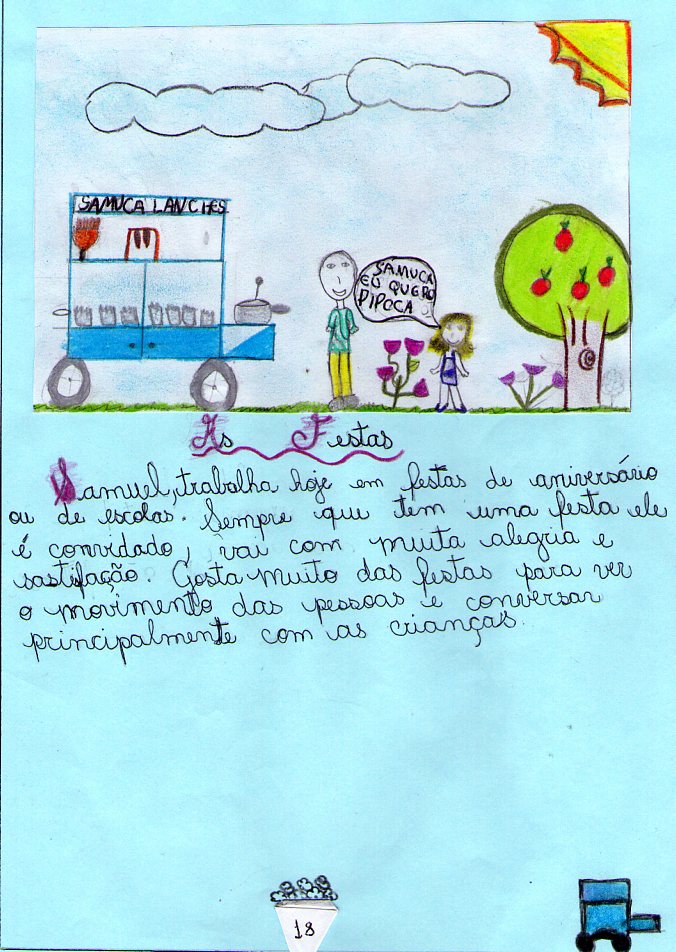 SAMUCA LANCHES
SAMUCA
EU QUERO
PIPOCA
As Festas
Samuel, trabalha hoje em festas de aniversário
ou de escolas. Sempre que tem uma festa ele
é convidado, vai com muita alegria e
sastifação. Gosta muito das festas para ver
o movimento das pessoas e conversar
principalmente com as crianças.
18